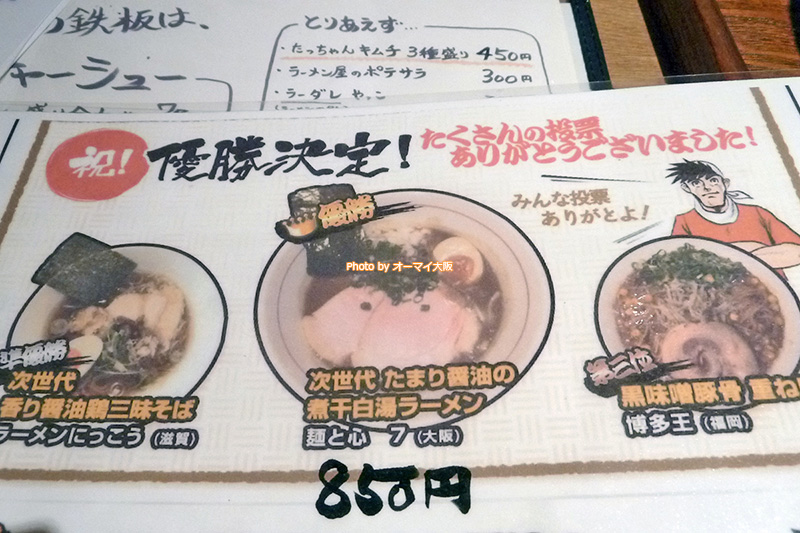 鉄板は、
チャーシュー
とりあえず…
・たっちゃんキムチ 3種盛り 450円
・ラーメン屋のポテサラ 300円
・ラーダレ やっこ
祝!
優勝決定!
たくさんの投票
ありがとうございました!
みんな投票
ありがとよ!
優勝
Photo by オーマイ大阪
準優勝
次世代
香り醤油鶏三昧そば
ラーメンにっこう (滋賀)
次世代 たまり醤油の
煮干白湯ラーメン
麺と心 7 (大阪)
黒味噌豚骨 重ね
博多王 (福岡)
850円